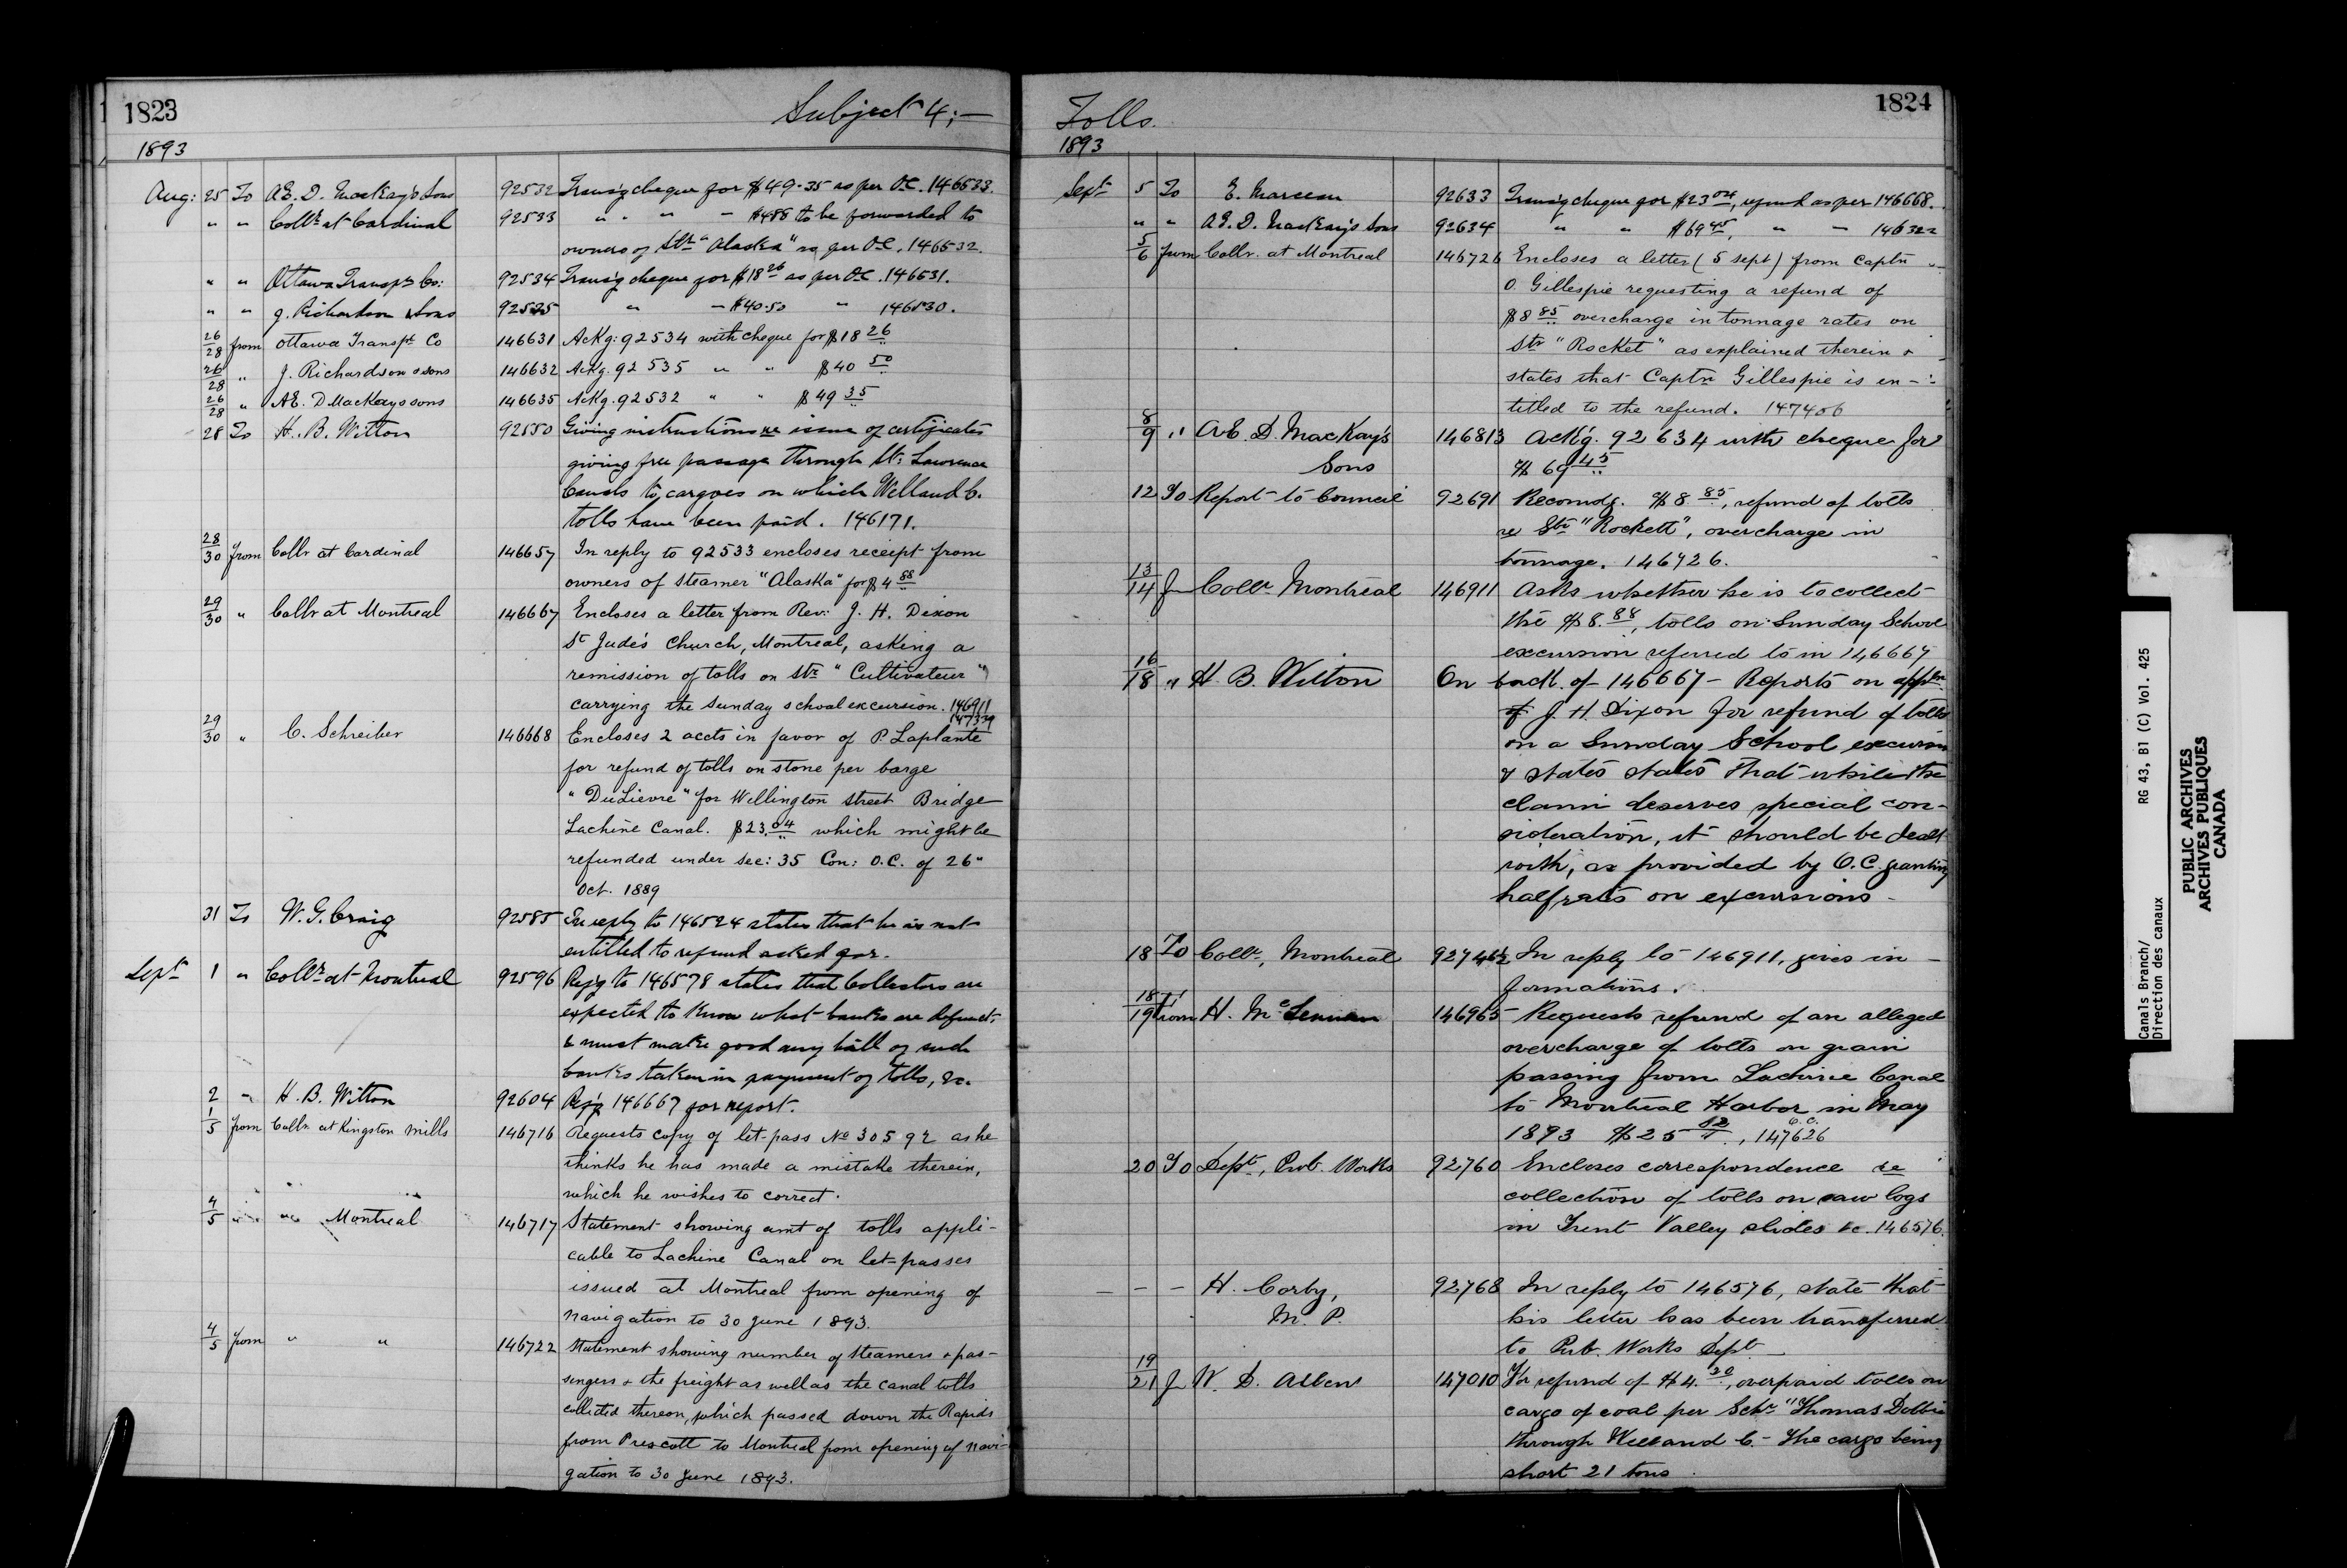 1823
Subject 4;—
1893
Aug: 25 To A.E. D. Mackay's Sons 92532 Transg cheque for $49.35 as per O.C. 146533.
" " Collr at Cardinal 92533 " " " — $4.88 to be forwarded to
owners of Str "Alaska" as per O.C. 146532.
" " Ottawa Transpt Co: 92534 Transg cheque for $18 26 as per O.C. 146531.
" " J. Richardson & Sons 92535 " — $40.50 " 146530.
26/28 from Ottawa Transpt Co 146631 Ackg: 92534 with cheque for $18 26
26/28 " J. Richardson & sons 146632 Ackg. 92535 " " $40 50
26/28 " A.E. D Mackays sons 146635 Ackg. 92532 " " $49 35
28 To H. B. Witton 92550 Giving instructions re issue of certificates
giving free passage through St. Lawrence
Canals to cargoes on which Welland C.
tolls have been paid. 146171.
28/30 from Collr at Cardinal 146657 In reply to 92533 encloses receipt from
owners of steamer "Alaska" for $4 88
29/30 " Collr at Montreal 146667 Encloses a letter from Rev: J. H. Dixon
St Jude's Church, Montreal, asking a
remission of tolls on Str "Cultivateur"
carrying the Sunday school excursion. 146911
29/30 " C. Schreiber 146668 Encloses 2 accts in favor of P. Laplante
for refund of tolls on stone per barge
"DuLievre" for Wellington street Bridge
Lachine Canal. $23.04 which might be
refunded under sec: 35 Con: O.C. of 26"
Oct. 1889
31 To W. G. Craig 92585 In reply to 146524 states that he is not
entitled to refund asked for.
Sept 1 " Collr at Montreal 92596 Rep'g to 146578 states that Collectors are
expected to know what banks are defunct,
& must make good any bill of such
banks taken in payment of tolls, &c.
2 " H. B. Witton 92604 Ref'g 146667 for report.
1/5 from Collr at Kingston Mills 146716 Requests copy of let-pass No 30592 as he
thinks he has made a mistake therein,
which he wishes to correct.
4/5 " " Montreal 146717 Statement showing amt of tolls appli-
cable to Lachine Canal on let-passes
issued at Montreal from opening of
navigation to 30 June 1893.
4/5 from " " 146722 Statement showing number of steamers & pas-
sengers & the freight as well as the canal tolls
collected thereon, which passed down the Rapids
from Prescott to Montreal from opening of navi-
gation to 30 June 1893.
Tolls.
1824
1893
Sept 5 To E. Marceau 92633 Transg cheque for $23 04, refund as per 146668.
" " A.E. D. Mackay's Sons 92634 " " $69 45, " — 146322
5/6 from Collr. at Montreal 146726 Encloses a letter (5 sept) from Captn
O. Gillespie requesting a refund of
$8 85 overcharge in tonnage rates on
Str "Rocket" as explained therein &
states that Captn Gillespie is en-
titled to the refund. 147406
8/9 " A.E. D. MacKay's 146813 Ack'g. 92634 with cheque for
Sons $69 45
12 To Report to Council 92691 Recomdg. $8.85, refund of tolls
re Str "Rockett", overcharge in
tonnage. 146726.
13/14 f Collr Montreal 146911 Asks whether he is to collect
the $8.88, tolls on Sunday School
excursion referred to in 146667
16/18 " H. B. Witton On back of 146667 - Reports on appln
of J. H. Dixon for refund of tolls
on a Sunday School excursion
& states states that while the
claim deserves special con-
sideration, it should be dealt
with, as provided by O.C. granting
half rates on excursions -
18 To Collr, Montreal In reply to 146911, gives in-
formations.
18/19 from H. Mc Lennan 146965 Requests refund of an alleged
overcharge of tolls on grain
passing from Lachine Canal
to Montreal Harbor in May
1893 $25 , O.C. 147626
20 To Dept, Pub. Works 92760 Encloses correspondence re
collection of tolls on saw logs
in Trent Valley slides &c. 146576.
— — — H. Corby, 92768 In reply to 146576, state that
M. P. his letter has been transferred
to Pub. Works Dept
19/21 f W. D. 147010 For refund of $4.20, overpaid tolls on
cargo of coal per Schr "Thomas
through Welland C. - The cargo being
short 21 tons
Canals Branch/ RG 43, B1 (C) Vol. 425
Direction des canaux
PUBLIC ARCHIVES
ARCHIVES PUBLIQUES
CANADA